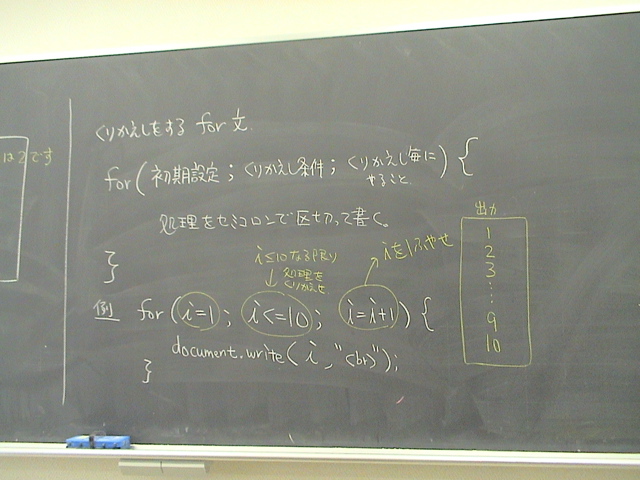 は2です
くりかえしをする for 文.
for(初期設定;くりかえし条件;くりかえし毎にやること){
処理をセミコロンで区切って書く。
}
i≤10なる限り
↓処理をくりかえせ
iを1ふやせ
例 for(i=1; i<=10; i=i+1){
document.write(i,"<br>");
}
出力
1
2
3
⋮
9
10